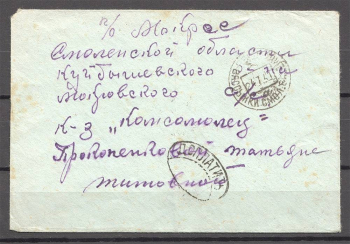 п/о Мокрое
Смоленской области
Куйбышевского
Мокровского
к-з "Комсомолец"
Прокопенко Татьяне
Титовной
ДОПЛАТИТЬ